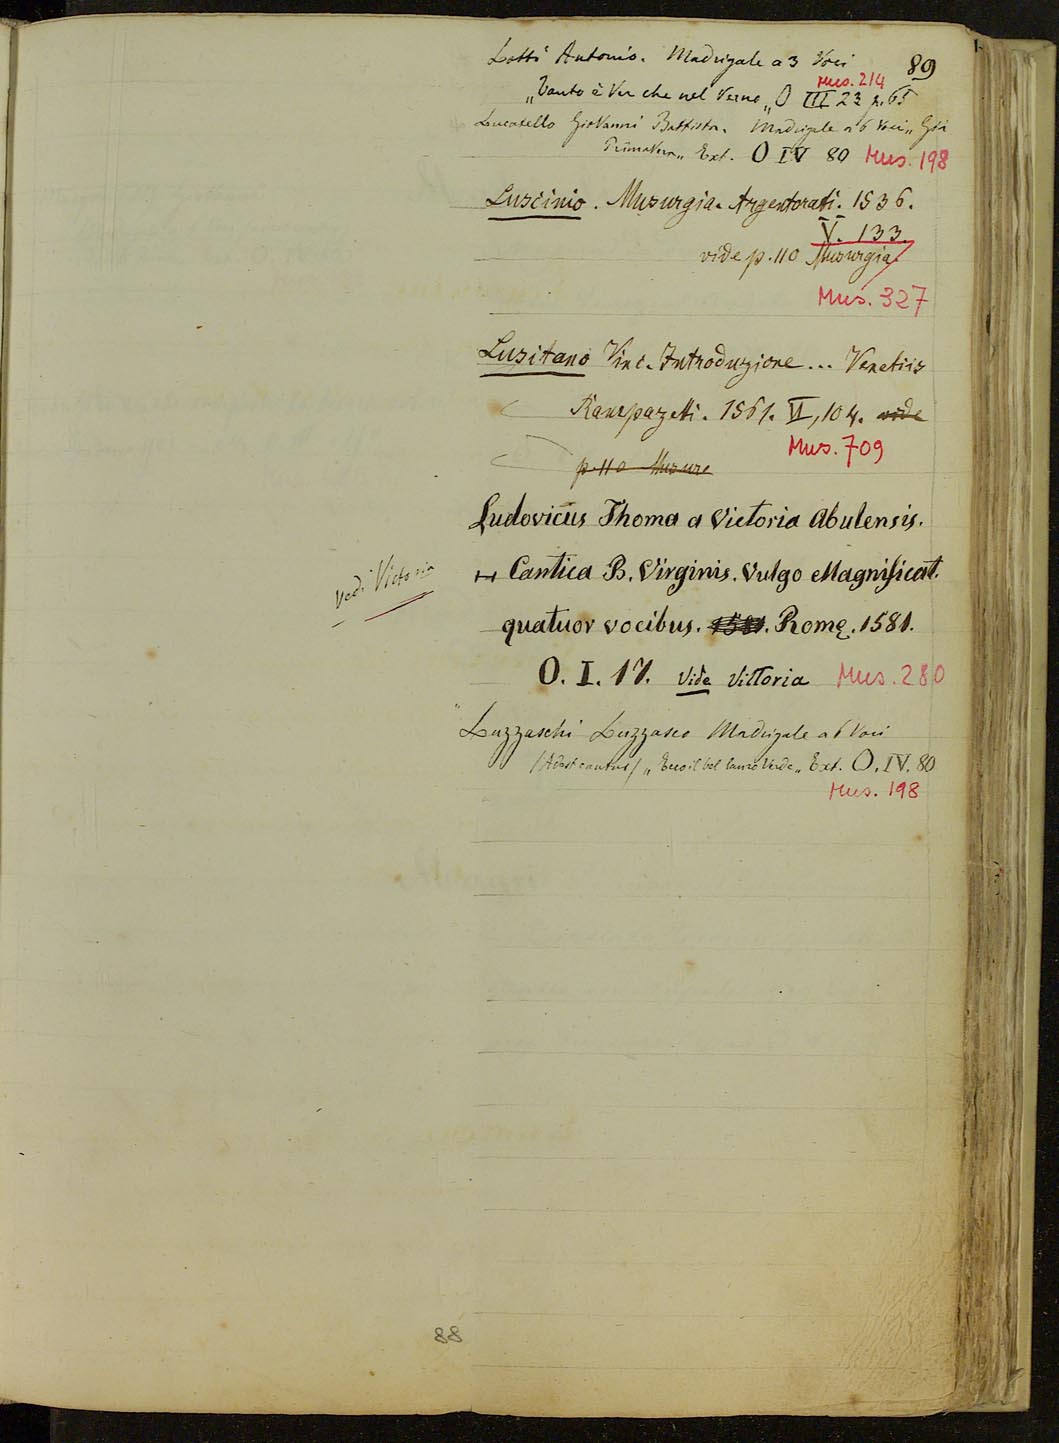 Lotti Antonio. Madrigale a 3 Voci 89
Mus. 214
„Tanto è Ver che nel Verno„ O III 23 p. 65
Lucatello Giovanni Battista. Madrigale a 6 Voci „ Già
PrimaVera„ Ext. O IV 80 Mus. 198
Luscinio. Musurgia. Argentorati. 1536.
V. 133.
vide p. 110 Musurgia.
Mus. 327
Lusitano Vinc. Introduzione... Venetiis
Rampazetti. 1561. VI, 104. vide
Mus. 709
p. 110 Musure
Ludovicus Thoma a Victoria Abulensis.
Vedi Victoria
Cantica B. Virginis. Vulgo Magnificat.
quatuor vocibus. 1581. Romę. 1581.
O. I. 17. Vide Vittoria Mus. 280
Luzzaschi Luzzasco Madrigale a 6 Voci
/Adest cantus/ „Ecco il bel lauro Verde„ Ext. O. IV. 80
Mus. 198
88